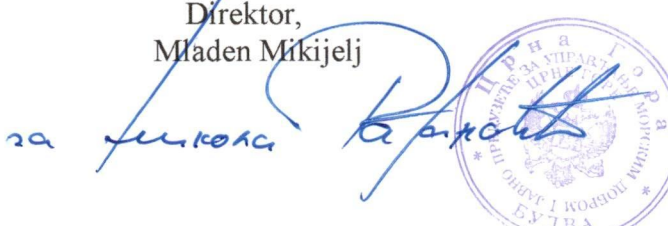 Direktor,
Mladen Mikijelj
за
Црна Гора
ЈАВНО ПРЕДУЗЕЋЕ ЗА УПРАВЉАЊЕ МОРСКИМ ДОБРОМ 1
ЦРНЕ ГОРЕ
БУДВА